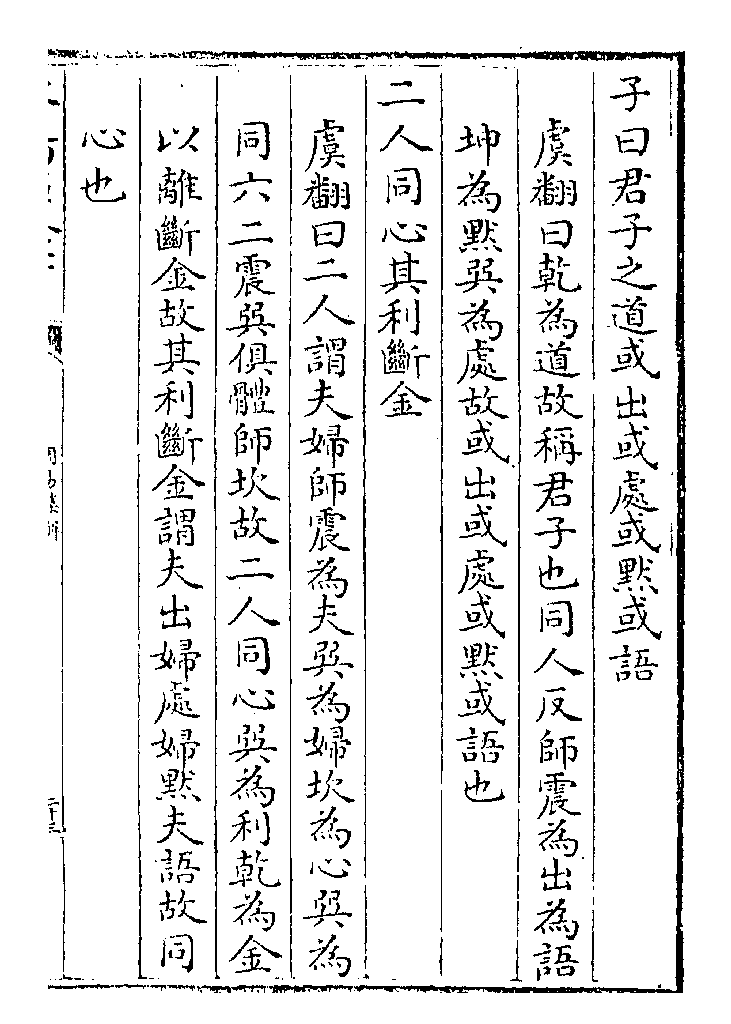 子曰君子之道或出或處或黙或語
虞翻曰乾為道故稱君子也同人反師震為出為語
坤為黙巽為處故或出或處或黙或語也
二人同心其利斷金
虞翻曰二人謂夫婦師震為夫巽為婦坎為心巽為
同六二震巽俱體師坎故二人同心巽為利乾為金
以離斷金故其利斷金謂夫出婦處婦黙夫語故同
心也